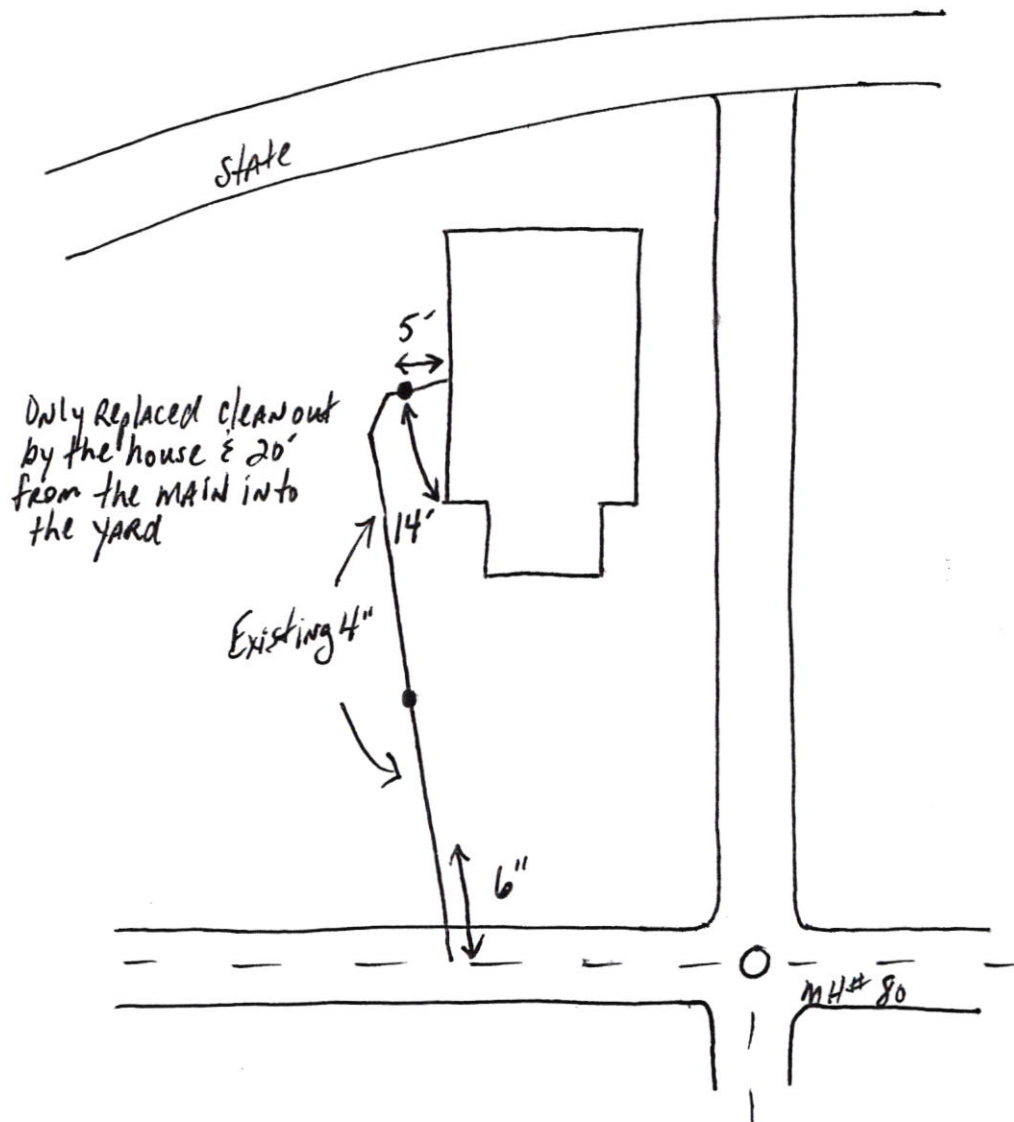 State
5'
Only Replaced cleanout
by the house & 20'
from the main into
the yard
14'
Existing 4"
6"
MH# 80